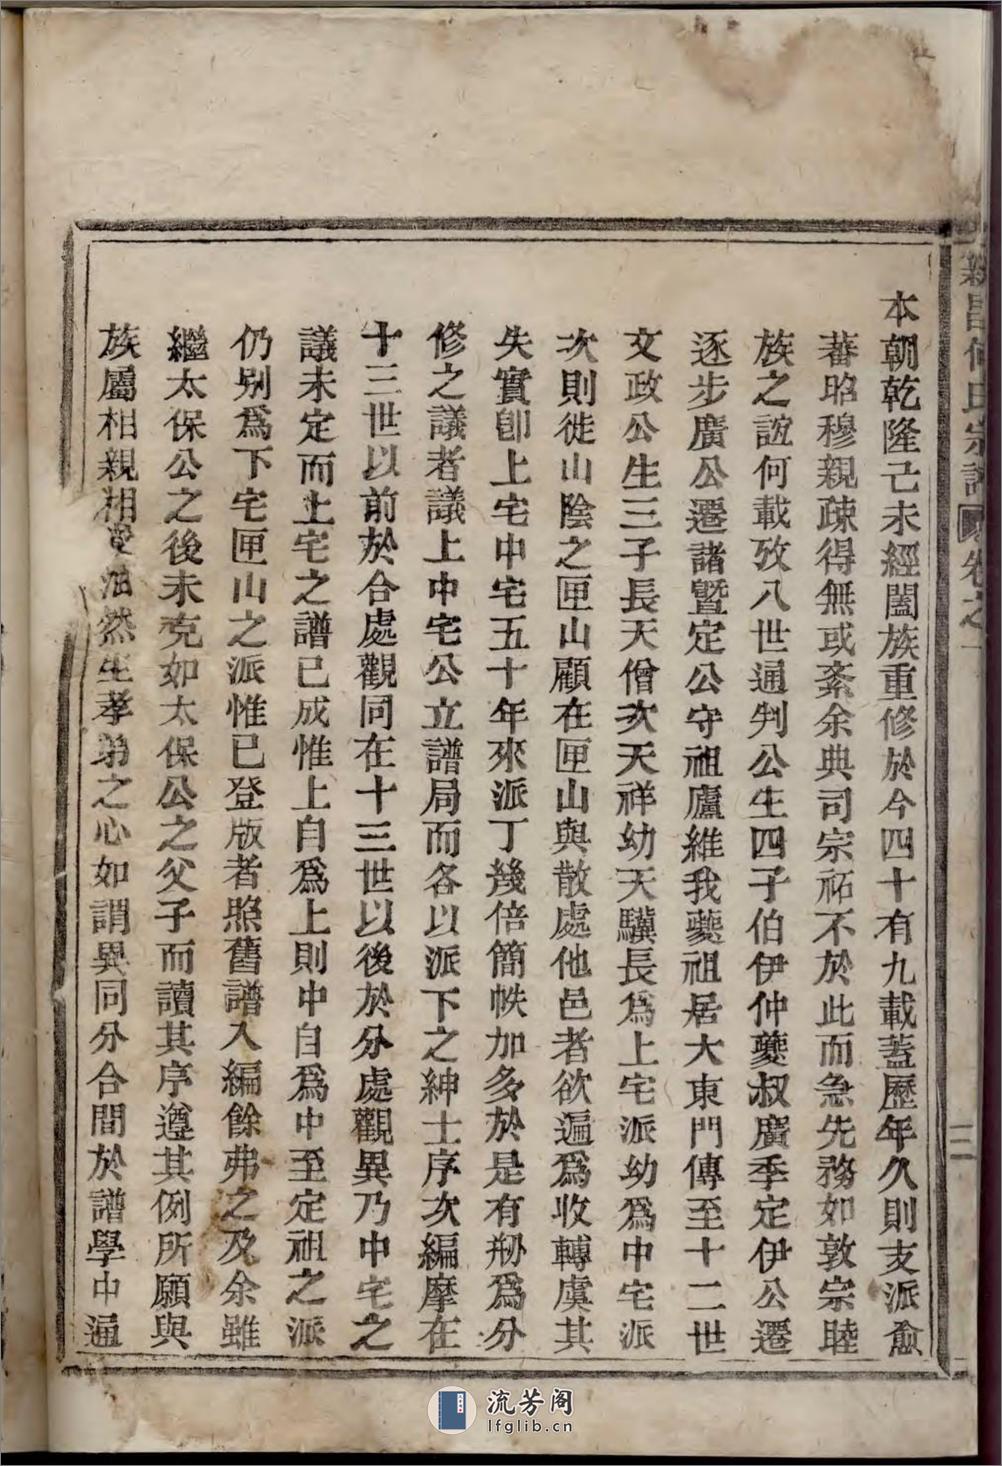 新昌何氏宗譜 卷之一 二
本朝乾隆己未經闔族重修於今四十有九載蓋歷年久則支派愈
蕃昭穆親疎得無或紊余典司宗祏不於此而急先務如敦宗睦
族之誼何載攷八世通判公生四子伯伊仲夔叔廣季定伊公遷
逐步廣公遷諸暨定公守祖廬維我夔祖居大東門傳至十二世
文政公生三子長天僧次天祥幼天驥長爲上宅派幼爲中宅派
次則徙山陰之匣山顧在匣山與散處他邑者欲遍爲收轉虞其
失實卽上宅中宅五十年來派丁幾倍簡帙加多於是有剏爲分
修之議者議上中宅公立譜局而各以派下之紳士序次編摩在
十三世以前於合處觀同在十三世以後於分處觀異乃中宅之
議未定而上宅之譜已成惟上自爲上則中自爲中至定祖之派
仍别爲下宅匣山之派惟已登版者照舊譜入編餘弗之及余雖
繼太保公之後未克如太保公之父子而讀其序遵其例所願與
族屬相親相愛油然生孝弟之心如謂異同分合間於譜學中遍
流芳阁
lfglib.cn